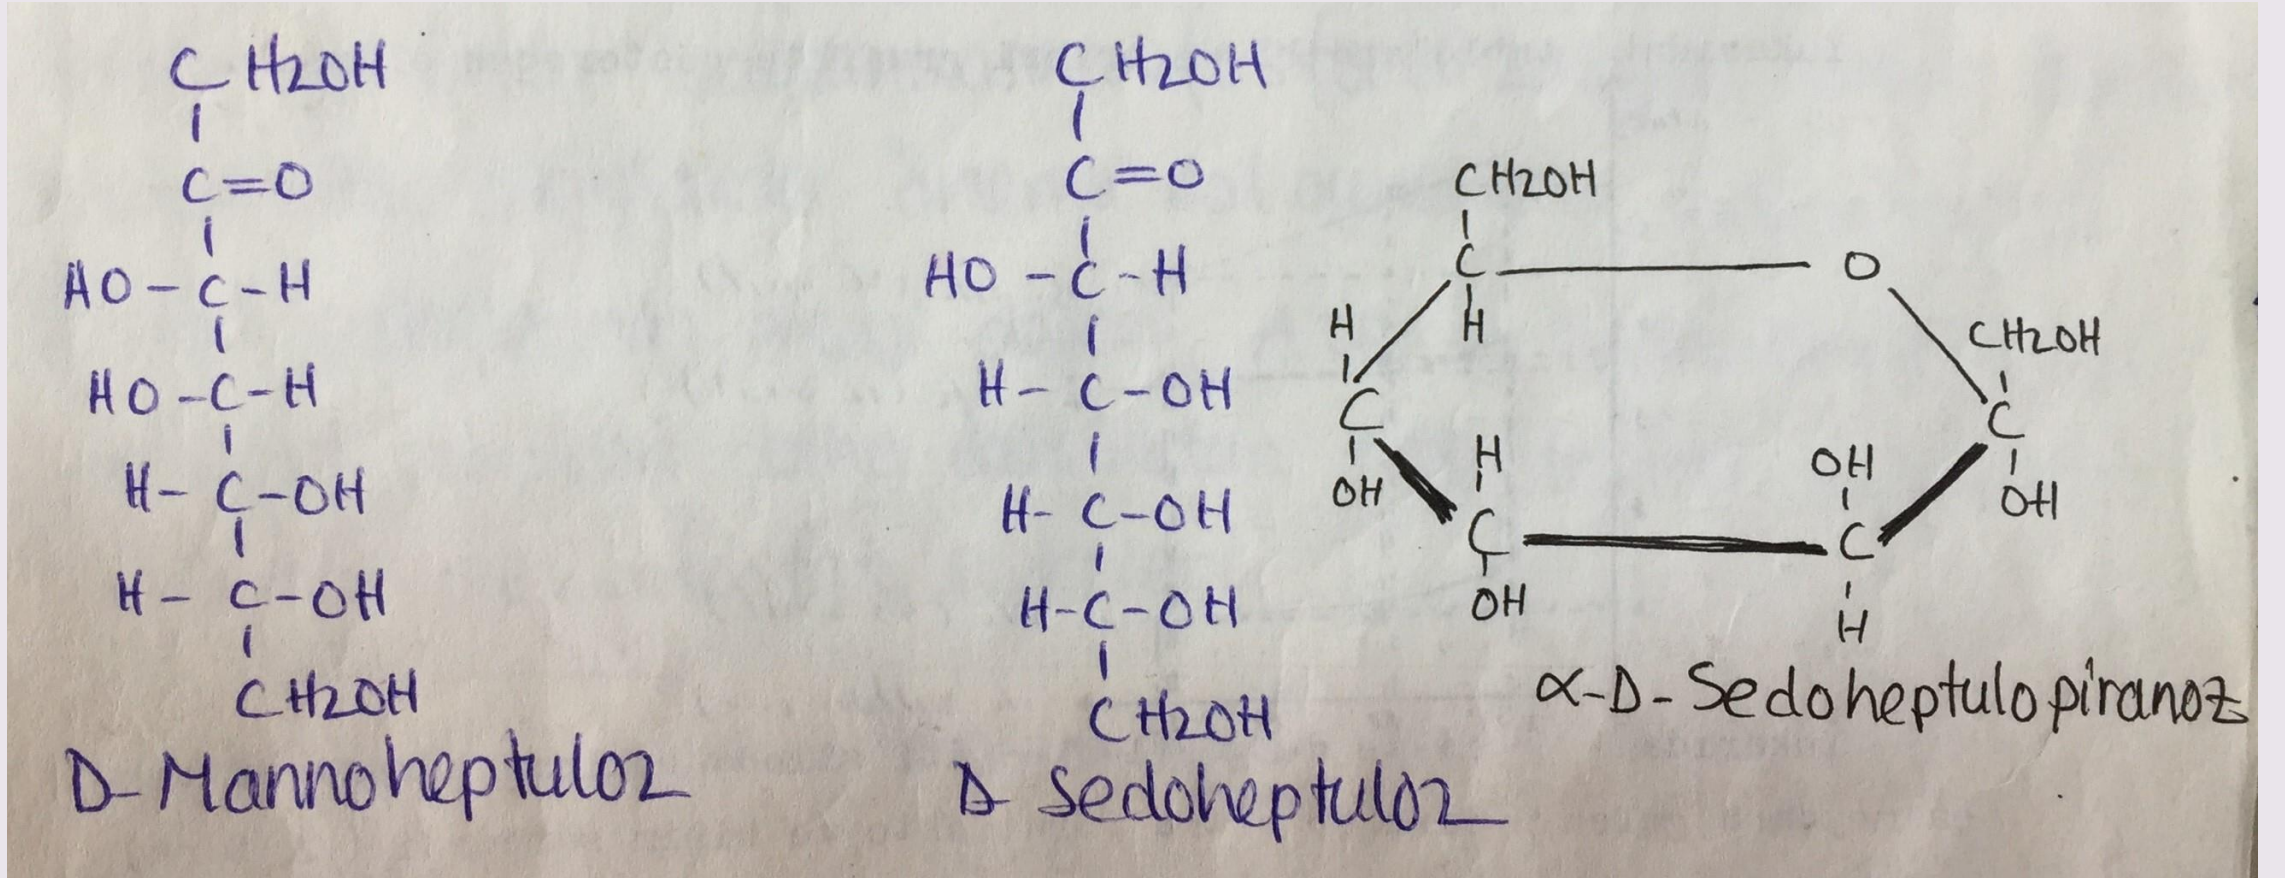 CH2OH
C=O
HO-C-H
HO-C-H
H-C-OH
H-C-OH
CH2OH
D-Mannoheptuloz
CH2OH
C=O
HO-C-H
H-C-OH
H-C-OH
H-C-OH
CH2OH
D Sedoheptuloz
CH2OH
C O
H H CH2OH
C C
OH H OH OH
C C
OH H
α-D-Sedoheptulopiranoz